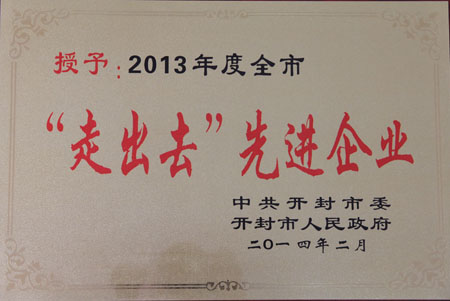 授予：2013年度全市
“走出去”先进企业
中共开封市委
开封市人民政府
二〇一四年二月